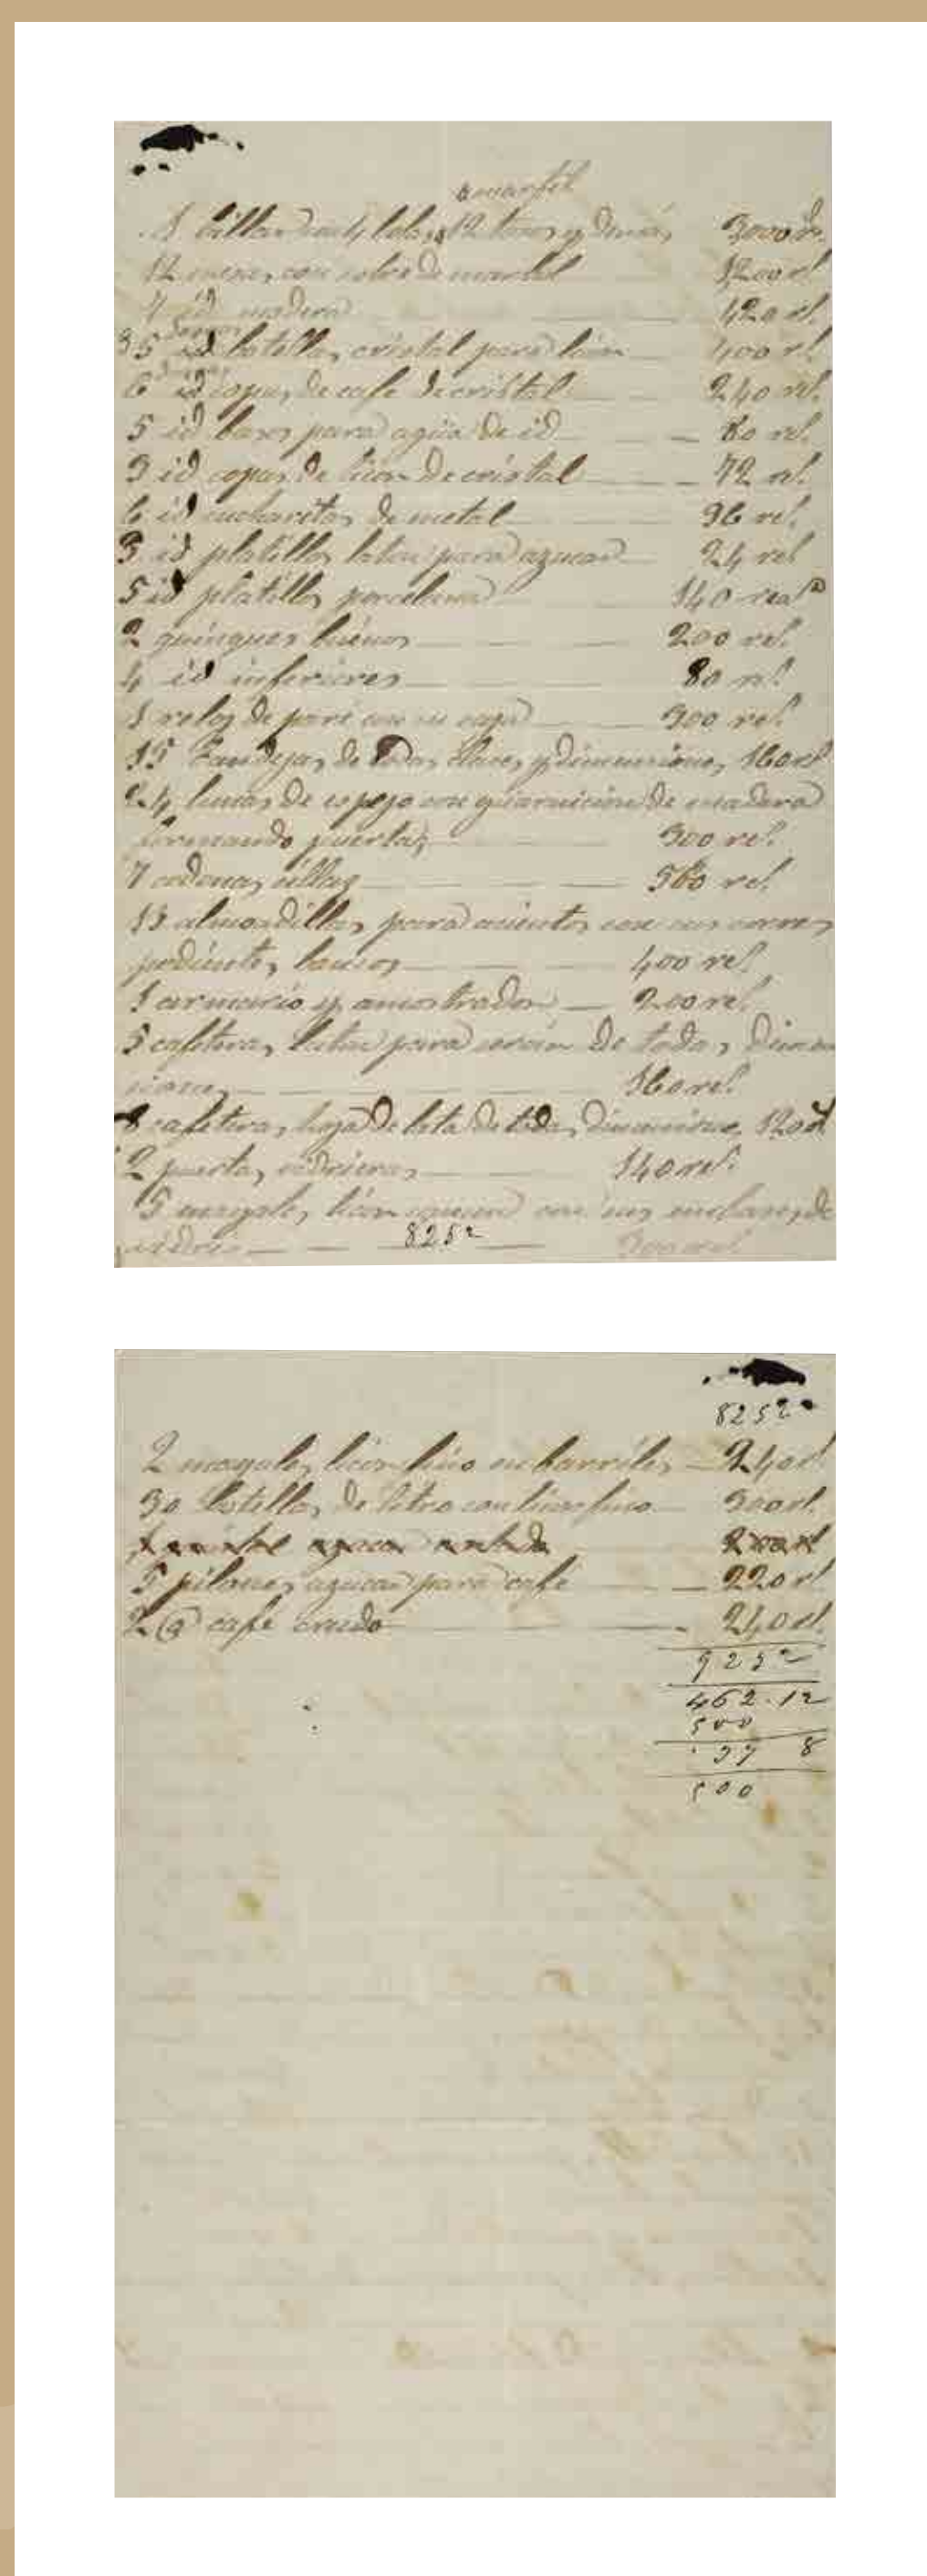 marfil
1 billar con 4 bolas 12 tacos y demás 3000 rl.
12 mesas con sobre de marbol 1200 rl
4 id madera 420 rl
docenas
3 id botellas cristal para licor 400 rl
docenas
6 id copas de cafe de cristal 240 rl.
5 id basos para agua de id 80 rl.
3 id copas de licor de cristal 72 rl.
6 id cucharitas de metal 96 rl.
3 id platillos laton para azucar 24 rel
5 id platillos porcelana 140 real
2 quinques buenos 200 rel.
4 id inferiores 80 rl
1 reloj de paré con su caja 300 rel.
15 Bandejas de todas clases y dimensiones 160 rl
24 lunas de espejo con guarnicion de madera
formando puertas 300 rel.
7 docenas sillas 560 rel.
13 almoadillas para acientos con sus corres
pondientes bancos 400 rel
1 armario y amostrador 200 rel.
5 cafeteras laton para servir de todas dimen
ciones 160 rel.
cafeteras hoja de lata de todas dimensiones 120 rl
2 puertas vidrieras 140 rel.
5 licor comun con sus embases de
vidrio 300 rel
8252
8252
2 licor fino en barriles 240 rl
30 botellas de litro con licor fino 300 rl.
5 pilones azucar para café 220 rl
2 @ café crudo 240 rl.
9252
462.12
500
37 8
500